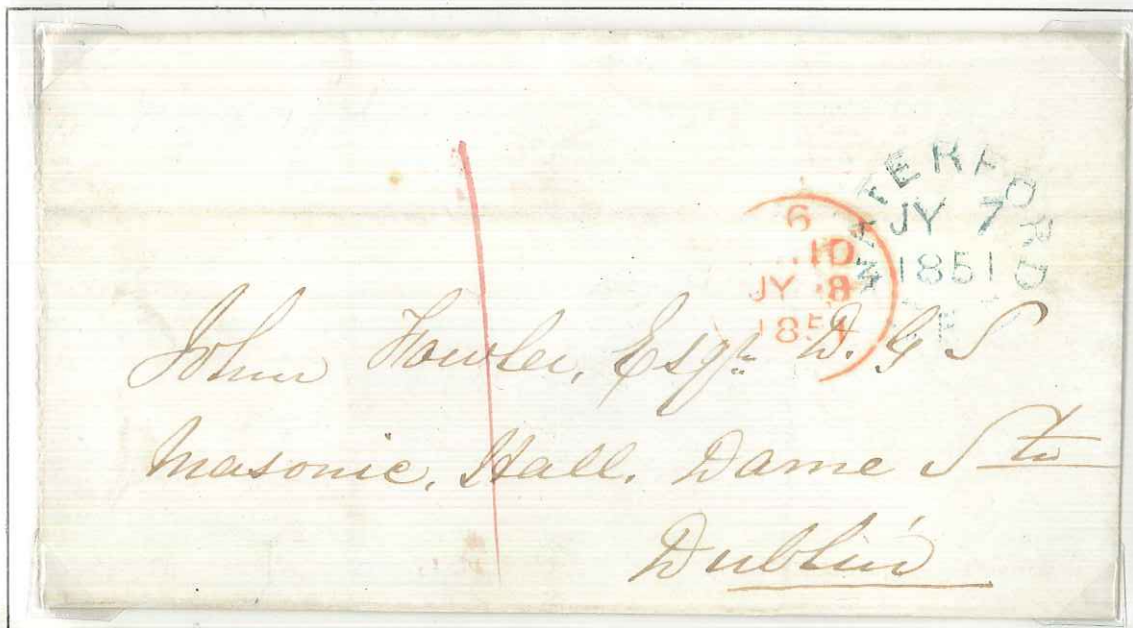 WATERFORD
JY 7
1851
6
JY 8
1851
John Fowler, Esqr. D. G S
Masonic, Hall. Dame St
Dublin